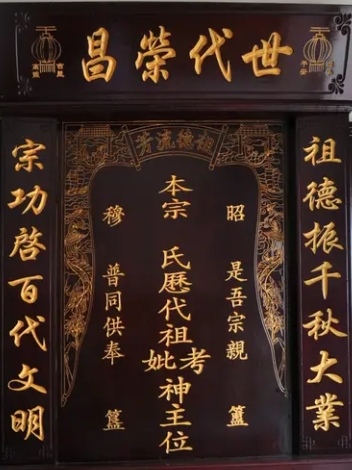 世代榮昌
祖德流芳
祖德振千秋大業
昭 是吾宗親 簠
本宗 氏歷代祖考妣神主位
穆 普同供奉 簋
宗功啓百代文明